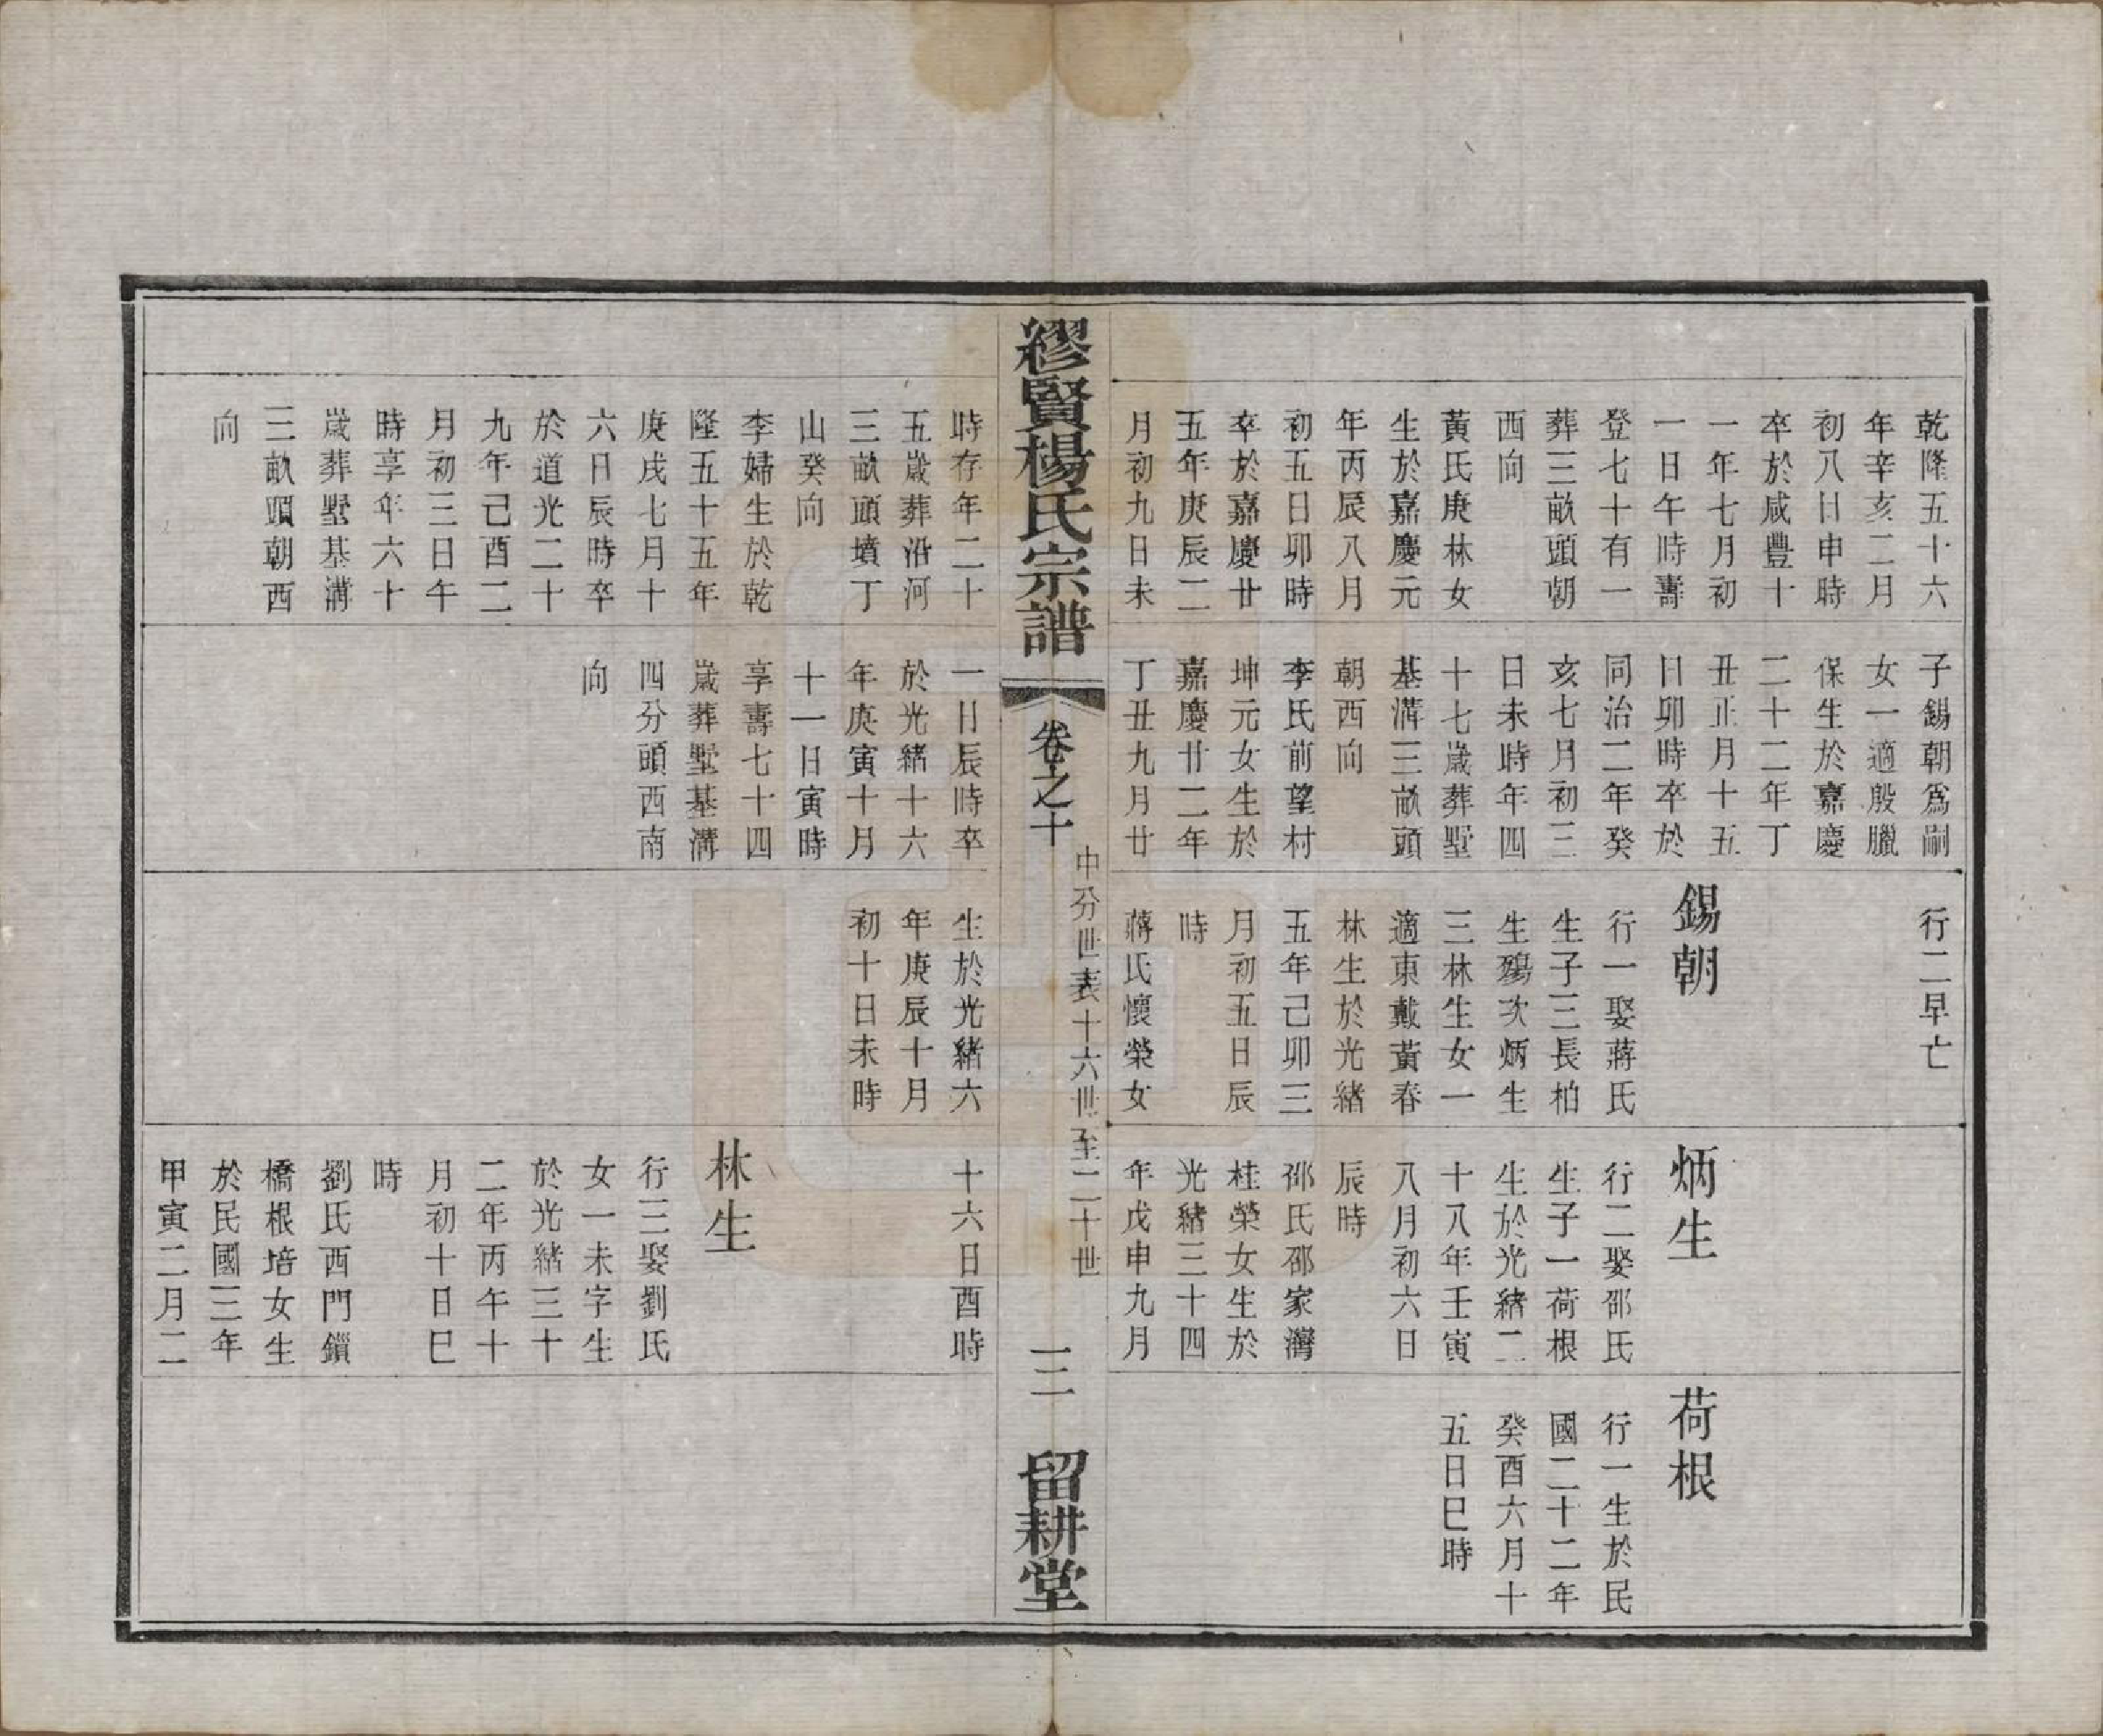 乾隆五十六
年辛亥二月
初八日申時
卒於咸豐十
一年七月初
一日午時壽
登七十有一
葬三畝頭朝
西向
黃氏庚林女
生於嘉慶元
年丙辰八月
初五日卯時
卒於嘉慶廿
五年庚辰二
月初九日未
子錫朝爲嗣
女一適殷臘
保生於嘉慶
二十二年丁
丑正月十五
日卯時卒於
同治二年癸
亥七月初三
日未時年四
十七歲葬墅
基溝三畝頭
朝西向
李氏前望村
坤元女生於
嘉慶廿二年
丁丑九月廿
行二早亡
錫朝
行一娶蔣氏
生子三長柏
生殤次炳生
三林生女一
適東戴黃春
林生於光緒
五年己卯三
月初五日辰
時
蔣氏懷榮女
炳生
行二娶邵氏
生子一荷根
生於光緒二
十八年壬寅
八月初六日
辰時
邵氏邵家灣
桂榮女生於
光緒三十四
年戊申九月
荷根
行一生於民
國二十二年
癸酉六月十
五日巳時
繆賢楊氏宗譜
卷之十
中分世表十六世至二十世
三
留耕堂
時存年二十
五歲葬沿河
三畝頭墳丁
山癸向
李婦生於乾
隆五十五年
庚戌七月十
六日辰時卒
於道光二十
九年己酉二
月初三日午
時享年六十
歲葬墅基溝
三畝頭朝西
向
一日辰時卒
於光緒十六
年庚寅十月
十一日寅時
享壽七十四
歲葬墅基溝
四分頭西南
向
生於光緒六
年庚辰十月
初十日未時
十六日酉時
林生
行三娶劉氏
女一未字生
於光緒三十
二年丙午十
月初十日巳
時
劉氏西門鎖
橋根培女生
於民國三年
甲寅二月二